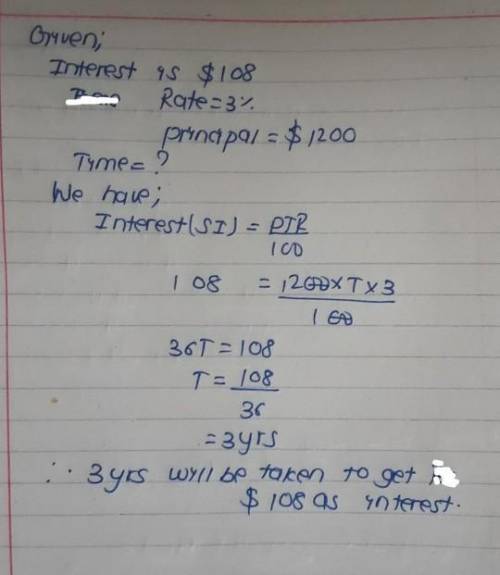 Given;
Interest is $108
Rate=3%
principal = $1200
Time= ?
We have;
Interest(SI) = PTR/100
108 = 1200×T×3/100
36T=108
T= 108/36
= 3yrs
∴ 3yrs will be taken to get
$108 as interest.